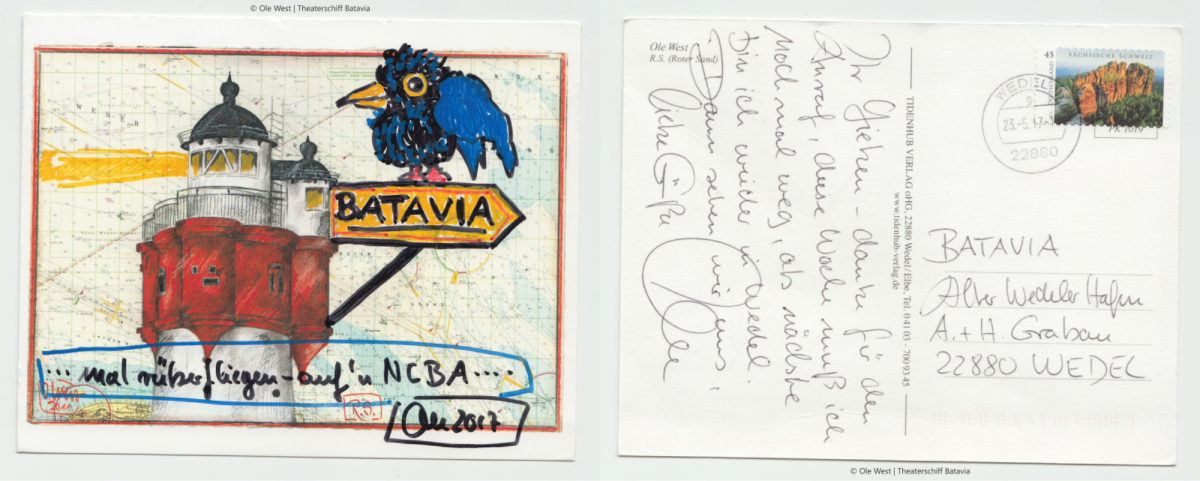 © Ole West | Theaterschiff Batavia
BATAVIA
... mal rüberfliegen - auf'n NCBA ....
R.S.
Ole 2017
Ole West
R.S. (Roter Sand)
Ihr - danke für den
Anruf, diese Woche muß ich
noch mal weg, ab nächste
bin ich wieder in Wedel.
Dann sehen wir uns,
Liebe Grüße Ole
TIDENHUB VERLAG oHG, 22880 Wedel / Elbe, Tel. 04103 - 7009345
www.tidenhub-verlag.de
45
SÄCHSISCHE SCHWEIZ
WEDEL
23.-5.17
22880
PK 1019
BATAVIA
Alter Wedeler Hafen
A. + H. Grabau
22880 WEDEL
© Ole West | Theaterschiff Batavia